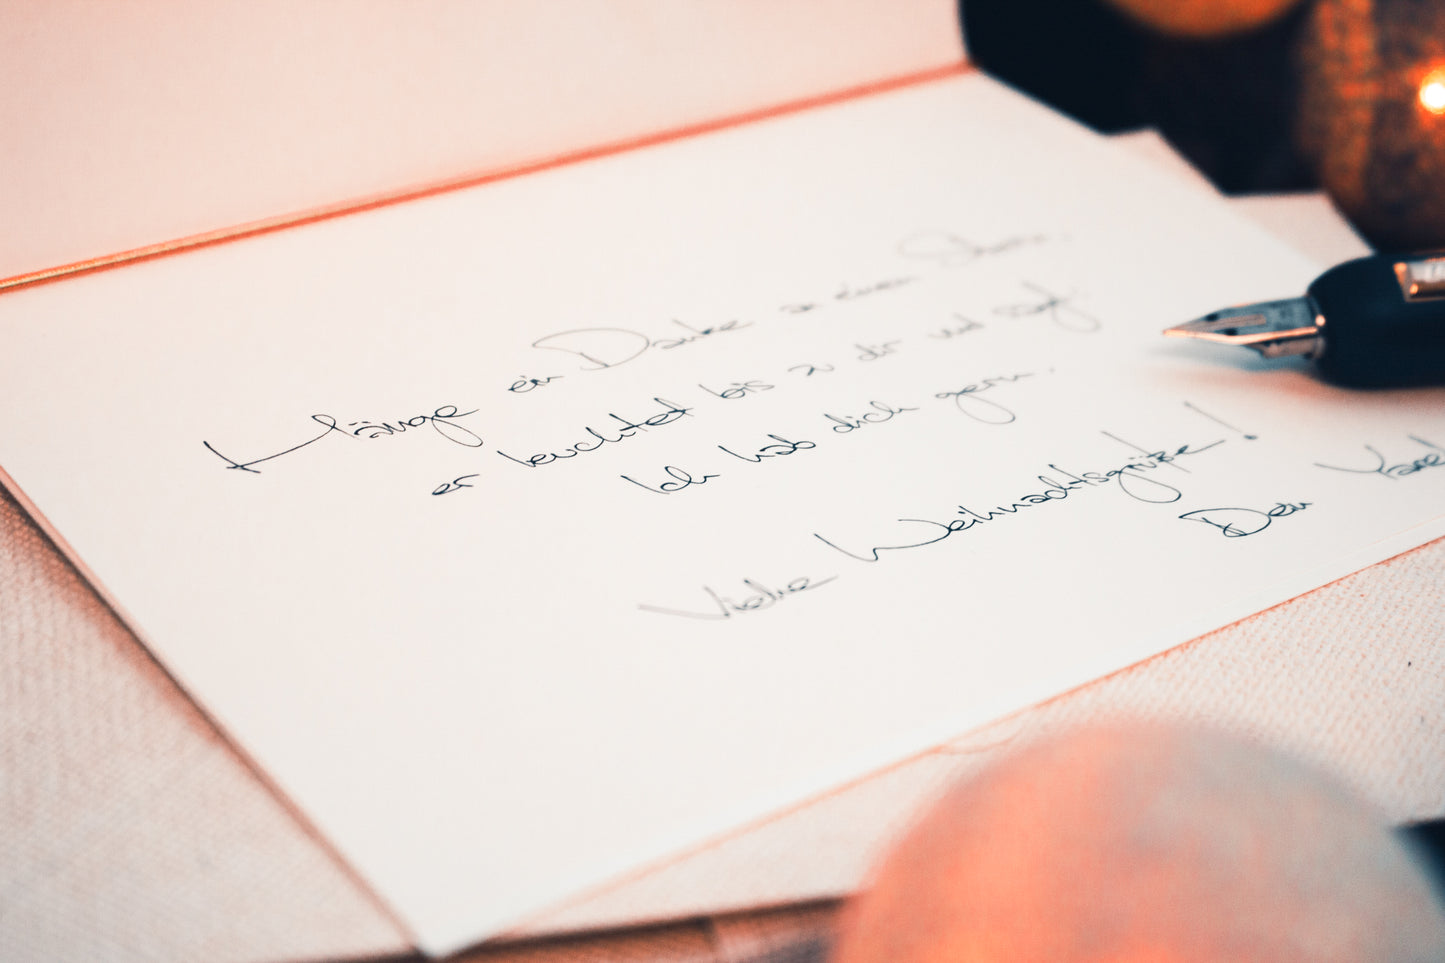 Hänge ein Danke an einen Stern,
er leuchtet bis zu dir und sagt:
Ich hab dich gern.
Viele Weihnachtsgrüße!
Dein